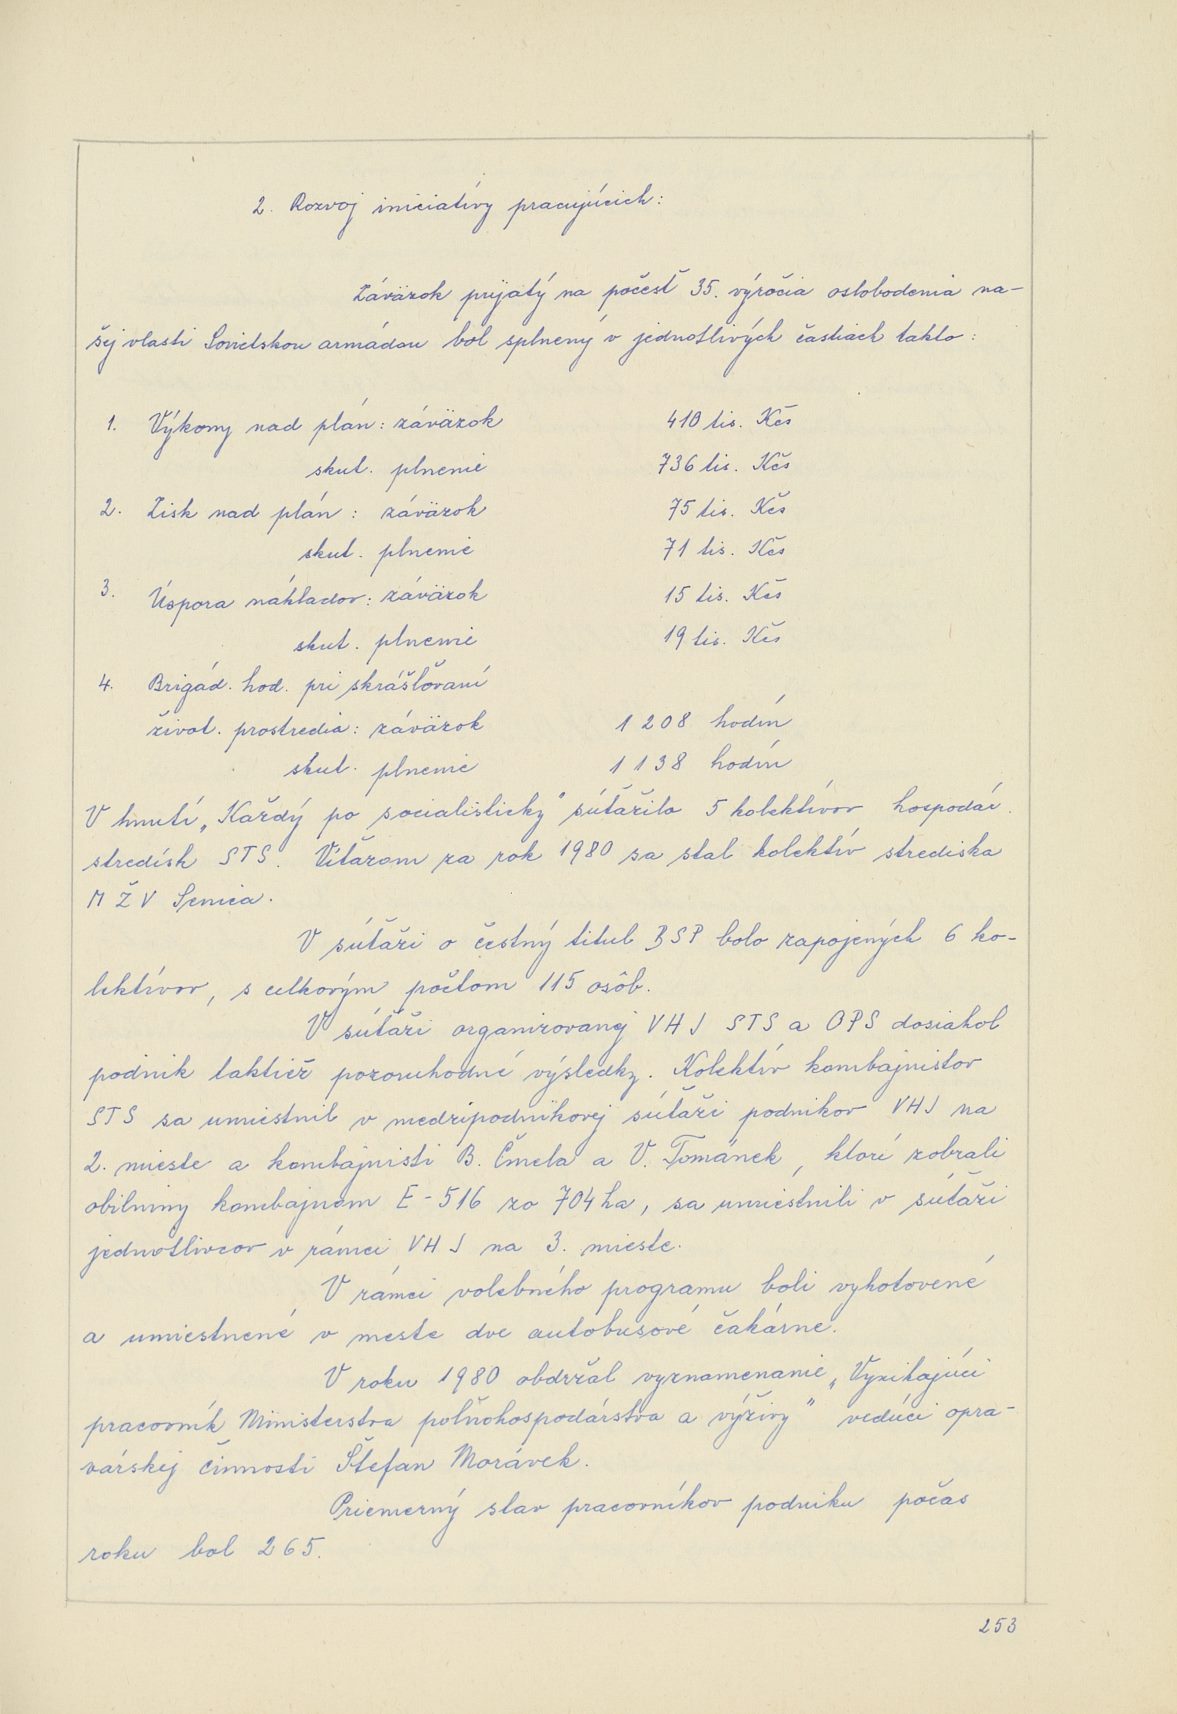 2. Rozvoj iniciatívy pracujúcich:
Záväzok prijatý na počesť 35. výročia oslobodenia na-
šej vlasti Sovietskou armádou bol splnený v jednotlivých častiach takto:
1. Výkony nad plán: záväzok 410 tis. Kčs
skut. plnenie 736 tis. Kčs
2. Zisk nad plán: záväzok 75 tis. Kčs
skut. plnenie 71 tis. Kčs
3. Úspora nákladov: záväzok 15 tis. Kčs
skut. plnenie 19 tis. Kčs
4. Brigád. hod. pri skrášľovaní
život. prostredia: záväzok 1 208 hodín
skut. plnenie 1 138 hodín
V hnutí „Každý po socialisticky" súťažilo 5 kolektívov hospodár.
stredísk STS. Víťazom za rok 1980 sa stal kolektív strediska
M Ž V Senica.
V súťaži o čestný titul BSP bolo zapojených 6 ko-
lektívov, s celkovým počtom 115 osôb.
V súťaži organizovanej VHJ STS a OPS dosiahol
podnik taktiež pozoruhodné výsledky. Kolektív kombajnistov
STS sa umiestnil v medzipodnikovej súťaži podnikov VHJ na
2. mieste a kombajnisti B. Čmela a V. Tománek, ktorí zobrali
obilniny kombajnom E-516 zo 704 ha, sa umiestnili v súťaži
jednotlivcov v rámci VHJ na 3. mieste.
V rámci volebného programu boli vyhotovené
a umiestnené v meste dve autobusové čakárne.
V roku 1980 obdržal vyznamenanie „Vynikajúci
pracovník Ministerstva poľnohospodárstva a výživy" vedúci opra-
várskej činnosti Štefan Morávek.
Priemerný stav pracovníkov podniku počas
roku bol 265.
253